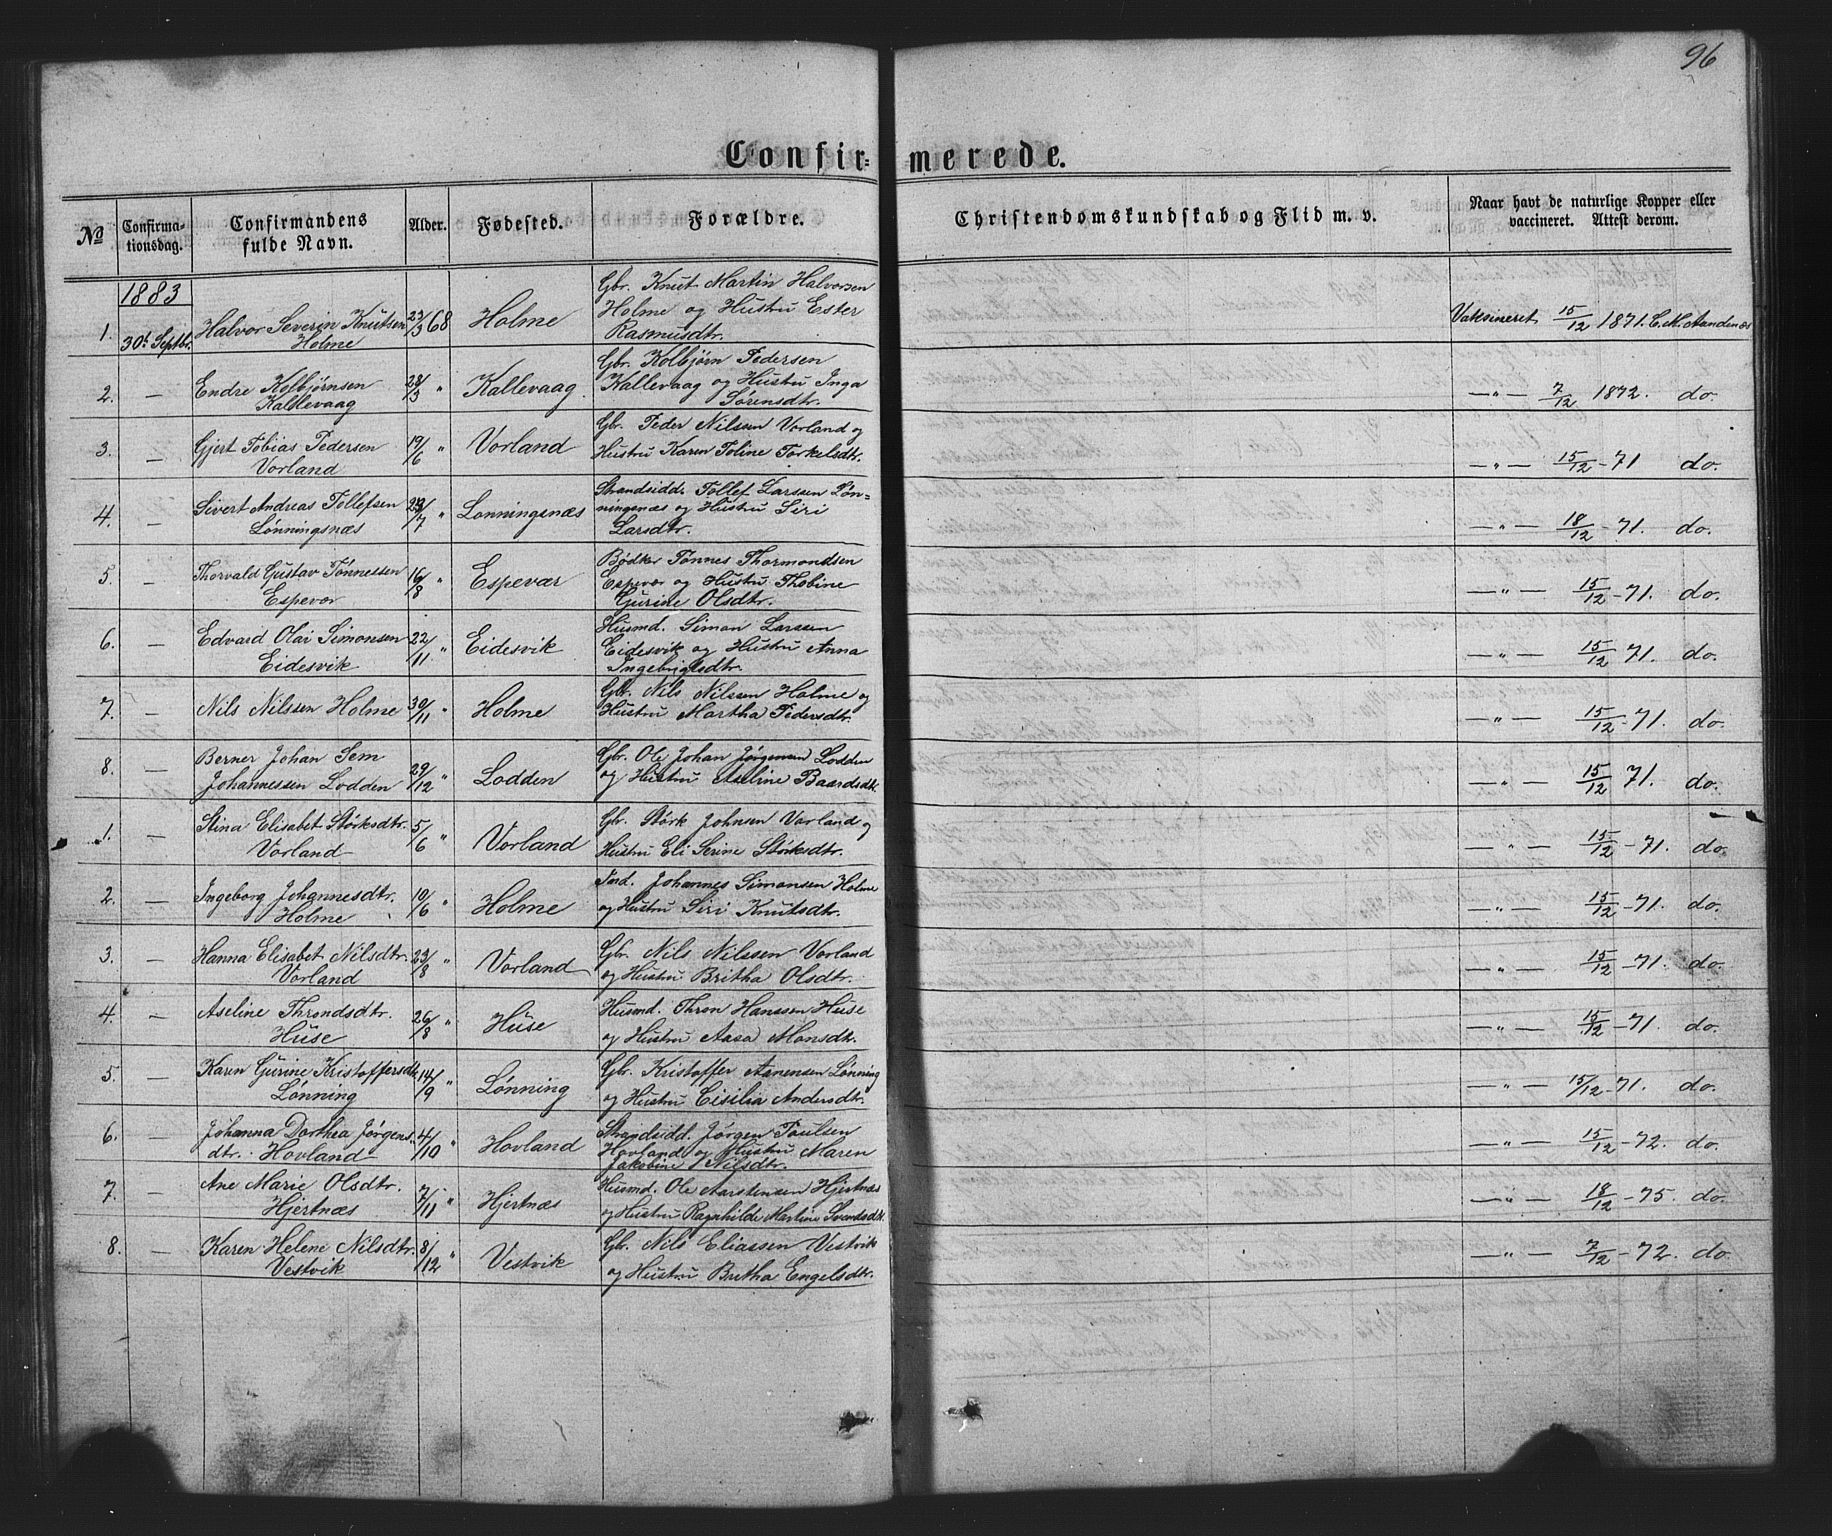 96
Confir- merede.
№ Confirma-tionsdag. Confirmandens fulde Navn. Alder. Fødested. Forældre. Christendomskundskab og Flid m. v. Naar havt de naturlige Kopper eller vaccineret. Attest derom.
1883
1. 30te Septbr. Halvor Severin Knutsen Holme 23/3 68 Holme Gbr. Knut Martin Halvorsen Holme og Hustru Ester Rasmusdtr. Vaksineret 15/12 1871. C. M. Aandenæs
2. — Endre Kolbjørnsen Kallevaag 28/3 " Kallevaag Gbr. Kolbjørn Pedersen Kallevaag og Hustru Inga Sørensdtr. —"— 7/12 1872. do.
3. — Gjert Tobias Pedersen Vorland 19/6 " Vorland Gbr. Peder Nilssen Vorland og Hustru Karen Toline Torkelsdtr. —"— 15/12-71 do.
4. — Sivert Andreas Tollefsen Lønningsnæs 29/7 " Lonningsnæs Strandsidd. Tollef Larssen Løn-ningsnæs og Hustru Siri Larsdtr. —"— 18/12-71. do.
5. — Thorvald Gustav Tønnessen Espevær 16/8 " Espevær Bødker Tønnes Thormondsen Espevær og Hustru Thobine Gurine Olsdtr. —"— 15/12-71. do.
6. — Edvard Olai Simonsen Eidesvik 22/11 " Eidesvik Husmd. Simon Larssen Eidesvik og Hustru Anna Ingebrigtsdtr. —"— 15/12 71. do.
7. — Nils Nilssen Holme 30/11 " Holme Gbr. Nils Nilssen Holme og Hustru Martha Pedersdtr. —"— 15/12-71. do.
8. — Berner Johan Sem Johannessen Lodden 29/12 " Lodden Gbr. Ole Johan Jørgensen Lodden og Hustru Aseline Baardsdtr. —"— 15/12 71. do.
1. — Stina Elisabet Størksdtr. Vorland 5/6 " Vorland Gbr. Størk Johnsen Vorland og Hustru Eli Serine Størksdtr. —"— 15/12-71. do.
2. — Ingeborg Johannesdtr. Holme 10/6 " Holme Ind. Johannes Simonsen Holme og Hustru Siri Knutsdtr. —"— 15/12-71. do.
3. — Hanna Elisabet Nilsdtr. Vorland 23/8 " Vorland Gbr. Nils Nilssen Vorland og Hustru Britha Olsdtr. —"— 15/12-71. do.
4. — Aseline Throndsdtr. Huse 26/8 " Huse Husmd. Thron Hanssen Huse og Hustru Aasa Monsdtr. —"— 15/12-71. do.
5. — Karen Gurine Kristoffersdtr. Lønning 14/9 " Lønning Gbr. Kristoffer Aanensen Lønning og Hustru Cisilia Andersdtr. —"— 15/12-71. do.
6. — Johanna Dorthea Jørgens-dtr. Hovland 4/10 " Hovland Strandsidd. Jørgen Paulsen Hovland og Hustru Maren Jakobine Nilsdtr. —"— 15/12-72. do.
7. — Ane Marie Olsdtr. Hjertnæs 7/11 " Hjertnæs Husmd. Ole Aarstensen Hjertnæs og Hustru Ragnhilde Martine Svendsdtr. —"— 18/12-75. do.
8. — Karen Helene Nilsdtr. Vestvik 8/12 " Vestvik Gbr. Nils Eliassen Vestvik og Hustru Britha Engelsdtr. —"— 7/12-72. do.